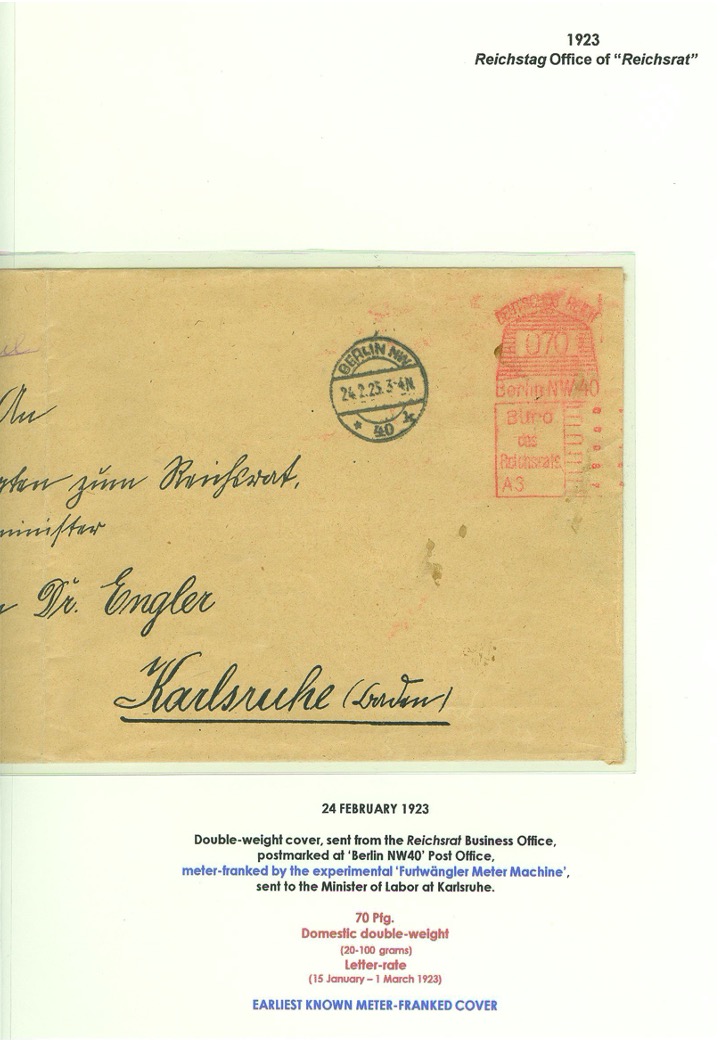 1923
Reichstag Office of “Reichsrat”
DEUTSCHES REICH
070
Berlin NW 40
Büro
des
Reichsrats.
A3
BERLIN NW
24.2.23. 3-4N
* 40 k
An
zum Reichsrat.
minister
Dr. Engler
Karlsruhe (Baden)
24 FEBRUARY 1923
Double-weight cover, sent from the Reichsrat Business Office,
postmarked at ‘Berlin NW40’ Post Office,
meter-franked by the experimental ‘Furtwängler Meter Machine’,
sent to the Minister of Labor at Karlsruhe.
70 Pfg.
Domestic double-weight
(20-100 grams)
Letter-rate
(15 January – 1 March 1923)
EARLIEST KNOWN METER-FRANKED COVER